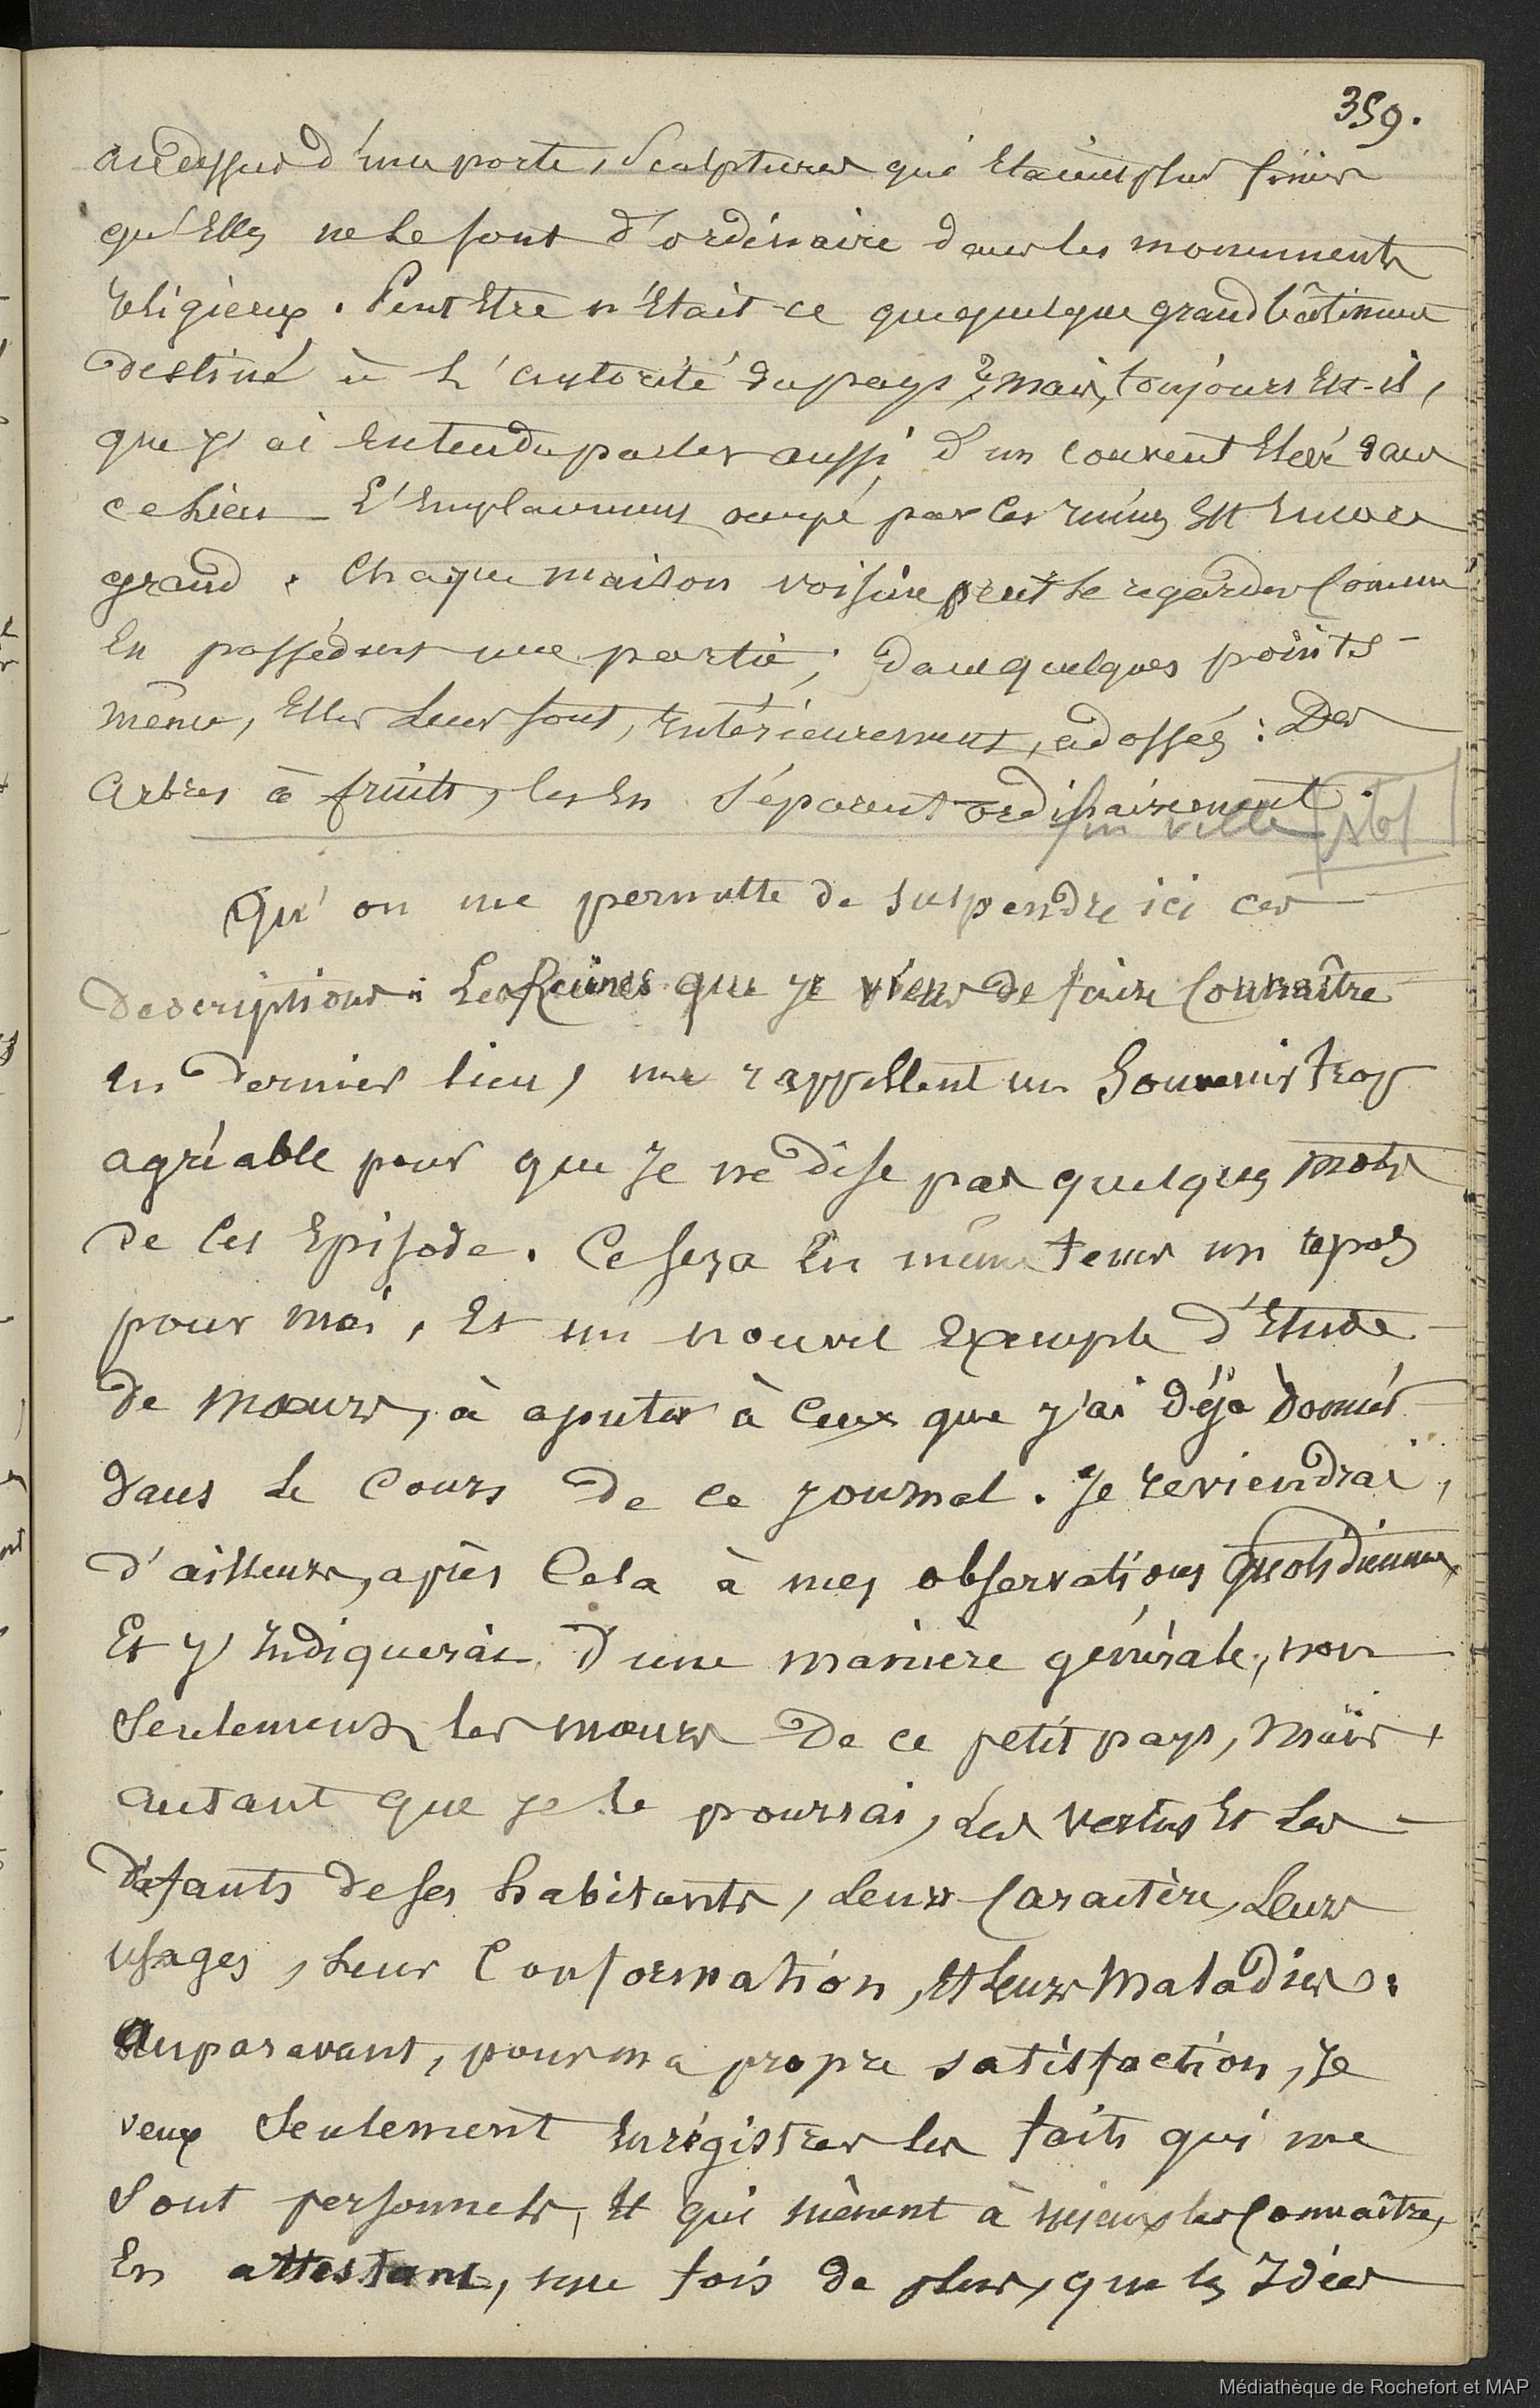 359.
au dessus d'une porte, Sculptures qui Etaient plus finies
qu'Elles ne le sont d'ordinaire dans les monuments
religieux. Peut Etre n'Etait-ce que quelque grand bâtiment
destiné à l'autorité du pays ? mais, toujours Est-il,
que j'ai Entendu parler aussi d'un couvent Elevé dans
ce lieu _ L'Emplacement occupé par ces ruines Est Encore
grand. Chaque maison voisine peut se regarder Comme
En possédant une partie; dans quelques points
même, Elles leur sont, Extérieurement, adossées : Des
arbres à fruits, les En séparent ordinairement.
fin ville
Qu'on me permette de suspendre ici ces
descriptions : Les Ruines que je viens de faire Connaître
En dernier lieu, me rappellent un Souvenir trop
agréable pour que je ne dise pas quelques mots
de Cet Episode. Ce sera En même tems un repos
pour moi, Et un nouvel Exemple d'Etude
de mœurs, à ajouter à Ceux que j'ai déjà donnés
dans le Cours de ce journal. Je reviendrai,
d'ailleurs, après Cela à mes observations quotidiennes,
Et j'Indiquerai d'une manière générale, non
Seulement les mœurs de ce petit pays, mais
autant que je le pourrai, Les vertus Et Les
défauts de ses habitants, Leur Caractère, Leurs
usages, Leur Conformation, Et Leurs Maladies.
Auparavant, pour ma propre satisfaction, Je
veux Seulement Enrégistrer les faits qui me
Sont personnels, Et qui mènent à mieux les Connaître,
En attestant, une fois de plus, que les Idées
Médiathèque de Rochefort et MAP